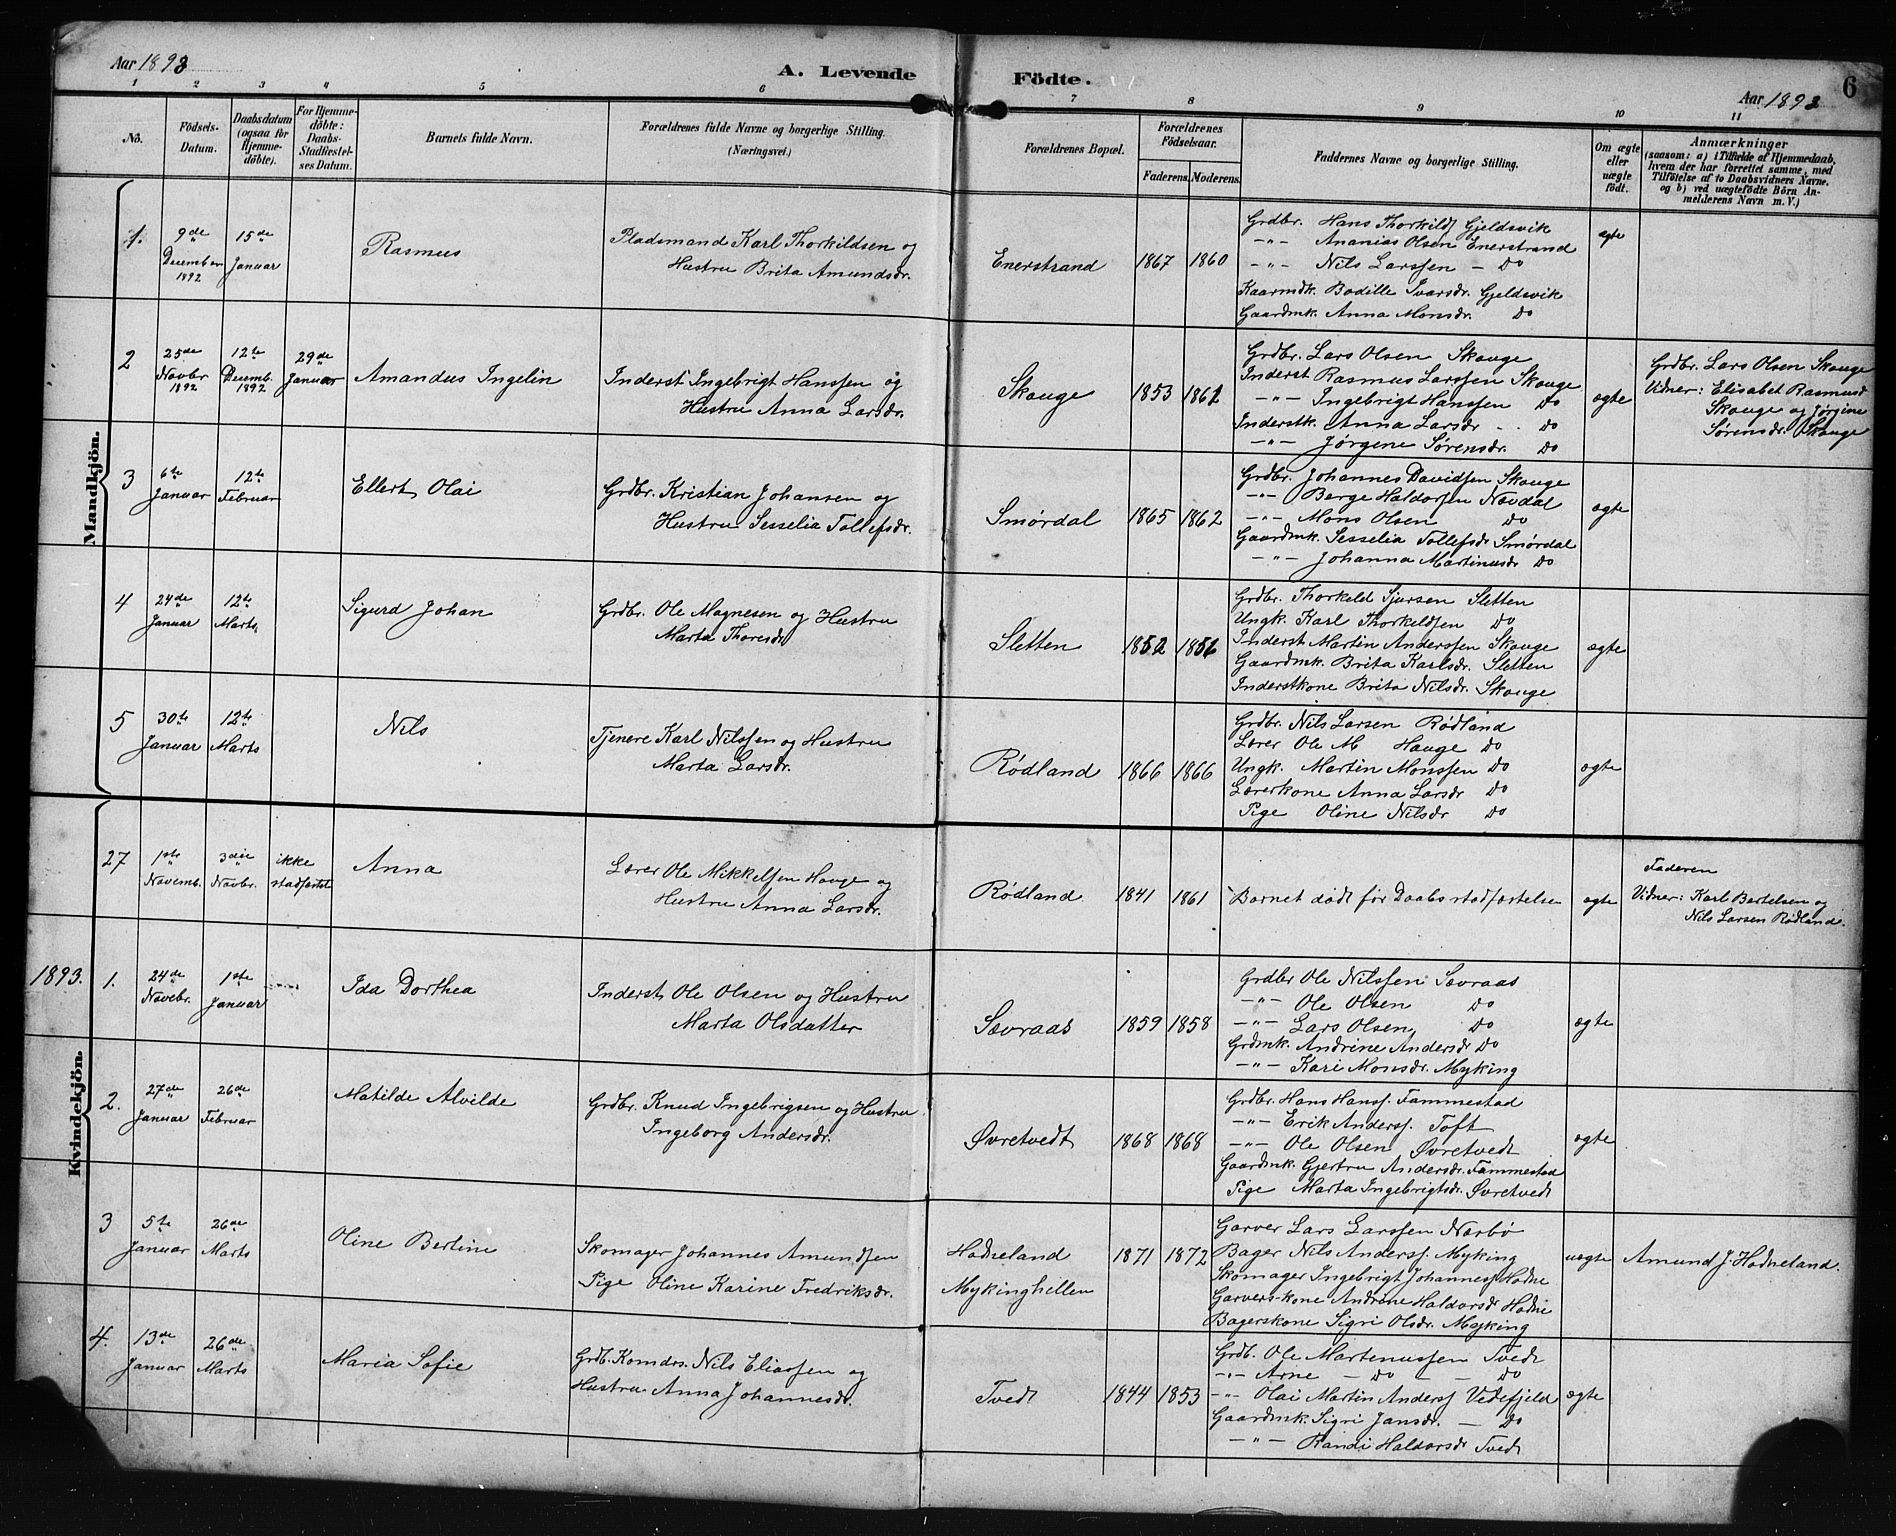 Aar 1893
A. Levende Födte.
Aar 1893
6
1 2 3 4 5 6 7 8 9 10 11
No.
Födsels-Datum.
Daabsdatum (ogsaa for Hjemme-döbte).
For Hjemme-döbte: Daabs-Stadfæstel-ses Datum.
Barnets fulde Navn.
Forældrenes fulde Navne og borgerlige Stilling.
(Næringsvei.)
Forældrenes Bopæl.
Forældrenes Födselsaar.
Faderens. Moderens.
Faddernes Navne og borgerlige Stilling.
Om ægte eller uægte födt.
Anmærkninger
(saasom: a) i Tilfælde af Hjemmedaab,
hvem der har forrettet samme, med
Tilföielse af to Daabsvidners Navne.
og b) ved uægtefödte Börn An-
melderens Navn m. V.)
Mandkjön.
1.
9de December 1892
15de Januar
Rasmus
Pladsmand Karl Thorkildsen og
Hustru Brita Amundsdr.
Enerstrand
1867 1860
Grdbr. Hans Thorkilds Gjeldsvik
-"- Ananias Olsen Enerstrand
-"- Nils Larssen - Do
Kaarmdk. Bodille Ivarsdr. Gjeldsvik
Gaardmk. Anna Monsdr. Do
ægte
2
25de Novbr 1892
12te Decemb. 1892
29de Januar
Amandus Ingelin
Inderst Ingebrigt Hanssen og
Hustru Anna Larsdr.
Skauge
1853 1862
Grdbr. Lars Olsen Skauge
Inderst Rasmus Larssen Skauge
-"- Ingebrigt Hanssen Do
Inderstk. Anna Larsdr - - Do
-"- Jørgene Sørensdr. Do
ægte
Grdbr. Lars Olsen Skauge
Vidner: Elisabet Rasmusd
Skauge og Jørgine
Sørensdr. Skauge
3
6te Januar
12te Februar
Ellert Olai
Grdbr. Kristian Johansen og
Hustru Sesselia Tollefsdr.
Smørdal
1865 1862
Grdbr. Johannes Davidsen Skauge
-"- Børge Haldorsen Nævdal
-"- Mons Olsen Do
Gaardmk. Sesselia Tollefsdr Smørdal
-"- Johanna Martinusdr Do
ægte
4
24de Januar
12te Marts
Sigurd Johan
Grdbr. Ole Magnesen og Hustru
Marta Thoresdr
Sletten
1852 1856
Grdbr. Thorkeld Sjursen Sletten
Ungk. Karl Thorkeldsen Do
Inderst Martin Anderssen Skauge
Gaardmk. Brita Karlsdr. Sletten
Inderstkone Brita Nilsdr. Skauge
ægte
5
30te Januar
12te Marts
Nils
Tjenere Karl Nilssen og Hustru
Marta Larsdr.
Rødland
1866 1866
Grdbr. Nils Larsen Rødland
Lærer Ole M Hauge Do
Ungk. Martin Monssen Do
Lærerkone Anna Larsdr Do
Pige Oline Nilsdr Do
ægte
Kvindekjön.
27
1ste Novemb.
3die Novbr.
ikke stadfæstet
Anna
Lærer Ole Mikkelsen Hauge og
Hustru Anna Larsdr.
Rødland
1841 1861
Barnet dødt før Daabsstadfæstelsen
ægte
Faderen
Vidner: Karl Bertelsen og
Nils Larsen Rødland.
1893.
1.
24de Novbr.
1ste Januar
Ida Dorthea
Inderst Ole Olsen og Hustru
Marta Olsdatter
Sævraas
1859 1858
Grdbr Ole Nilssen Sævraas
-"- Ole Olsen Do
-"- Lars Olsen Do
Grdmk. Andrine Andersdr Do
-"- Kari Monsdr. Myking
ægte
2.
27de Januar
26de Februar
Matilde Alvilde
Grdbr. Knud Ingebrigsen og Hustru
Ingeborg Andersdr.
Øvretvedt
1868 1868
Grdbr. Hans Hanss. Fammestad
-"- Erik Anderss. Toft
-"- Ole Olsen Øvretvedt
Gaardmk. Gjertru Andersdr. Fammestad
Pige Marta Ingebrigtsdr. Øvretvedt
ægte
3
5te Januar
26de Marts
Oline Bertine
Skomager Johannes Amundsen
Pige Oline Karine Fredriksdr.
Hodneland
Mykinghellen
1871 1872
Garver Lars Larssen Nærbø
Bager Nils Anderss. Myking
Skomager Ingebrigt Johanness Hodne
Garvers-kone Andrine Haldorsdr Hodne
Bagerskone Sigri Olsdr. Myking
uægte
Amund J. Hodneland.
4.
13de Januar
26de Marts
Maria Sofie
Grdb. Komdrs. Nils Eliassen og
Hustru Anna Johannesdr.
Tvedt
1844 1853
Grdb. Ole Martenussen Tvedt
-"- Arne - Do - - Do
-"- Olai Martin Anderss Vedefjeld
Gaardmk. Sigri Jansdr. - Do
-"- Randi Haldorsdr Tvedt
ægte